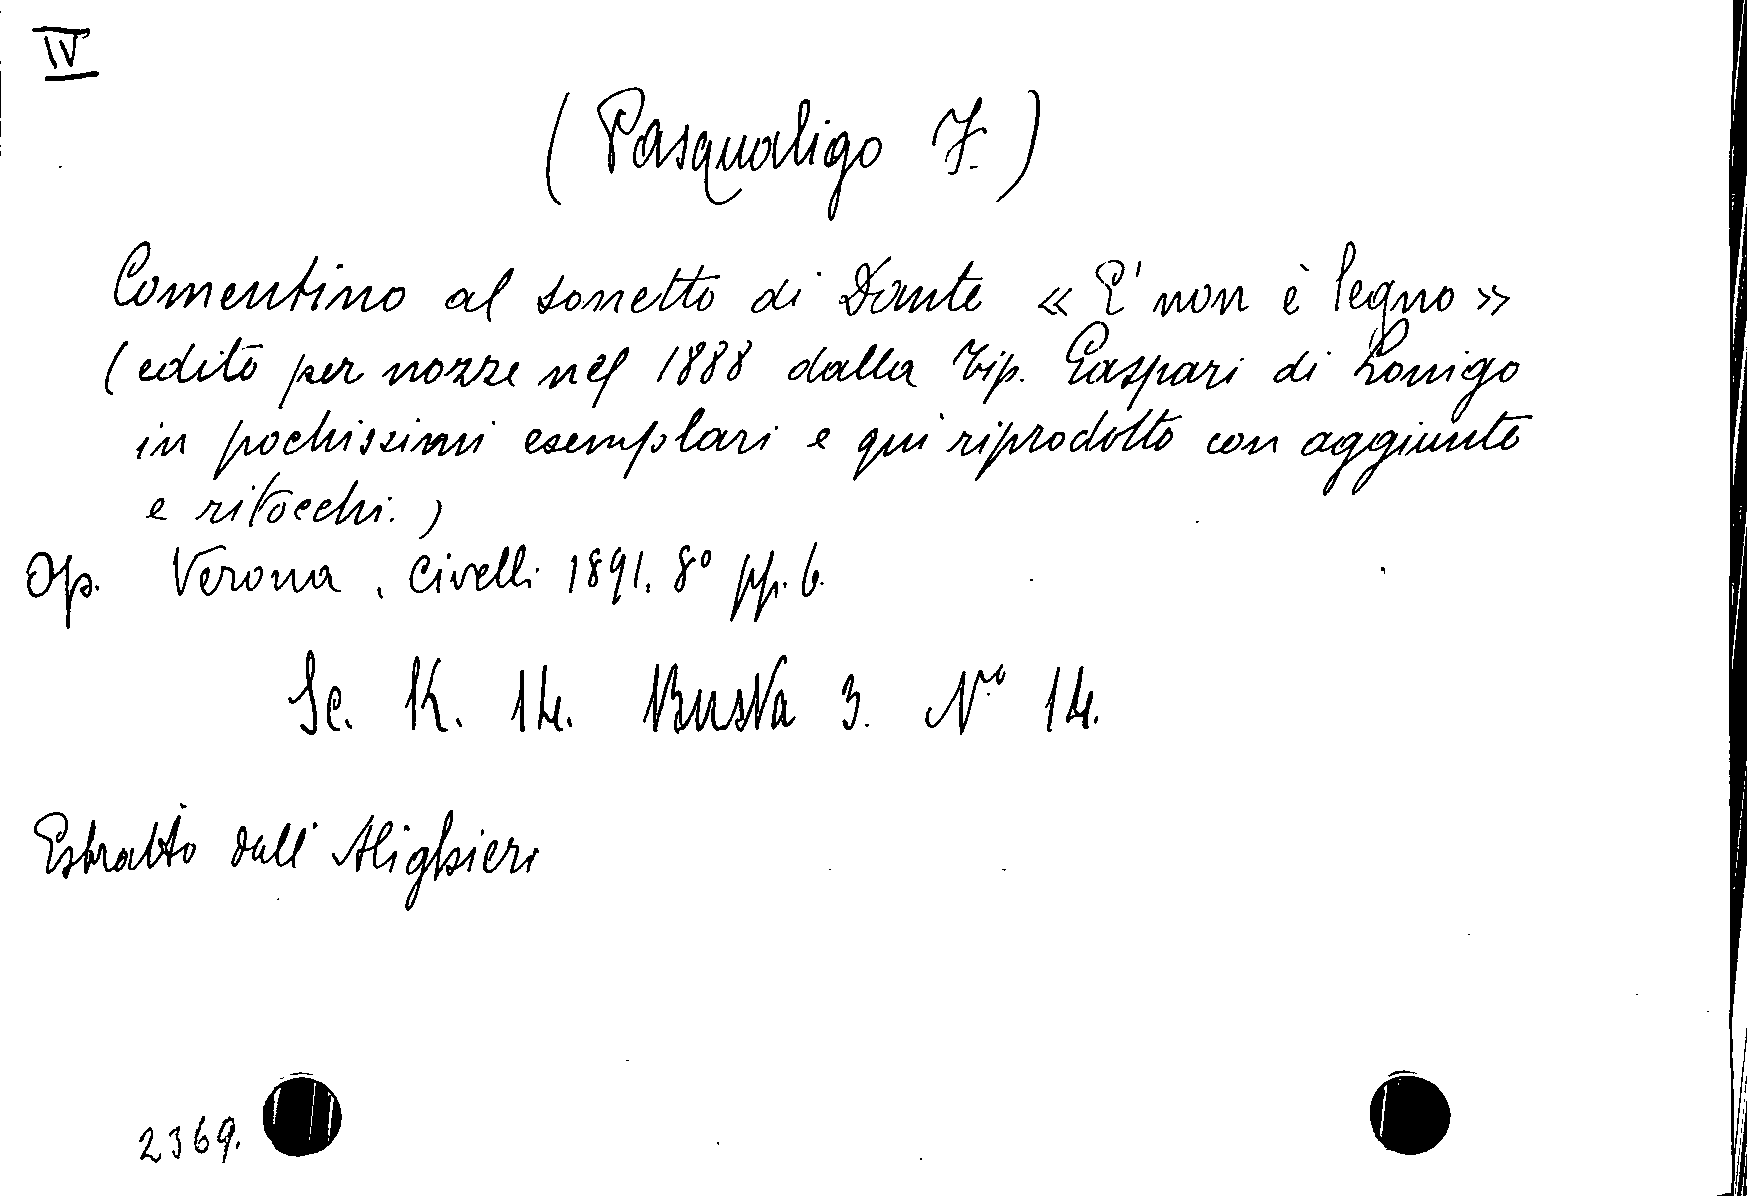 IV
(Pasqualigo F.)
Comentino al sonetto di Dante « E' non è legno »
(edito per nozze nel 1888 dalla Tip. Gaspari di Lonigo
in pochissimi esemplari e qui riprodotto con aggiunte
e ritocchi.)
Op. Verona, Civelli 1891. 8° pp. 6.
Sc. K. 14. Busta 3. N° 14.
Estratto dall'Alighieri
2369.